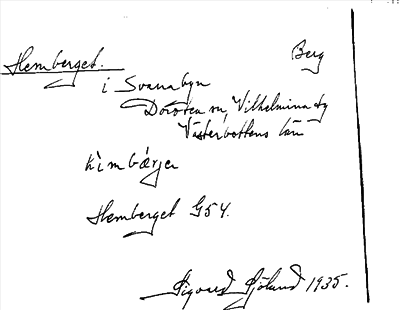 Hemberget. Berg
i Svanabyn
Dorotea sn, Vilhelmina tg
Västerbottens län
Hemberget G54.
Sigvard Sjölund 1935.